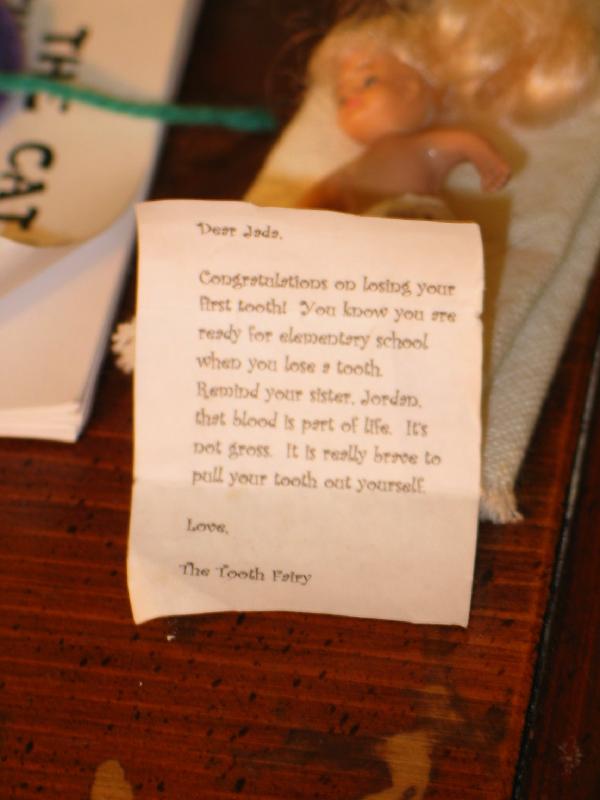 THE
CAT
Dear Jada,
Congratulations on losing your
first tooth! You know you are
ready for elementary school
when you lose a tooth.
Remind your sister, Jordan,
that blood is part of life. It's
not gross. It is really brave to
pull your tooth out yourself.
Love,
The Tooth Fairy